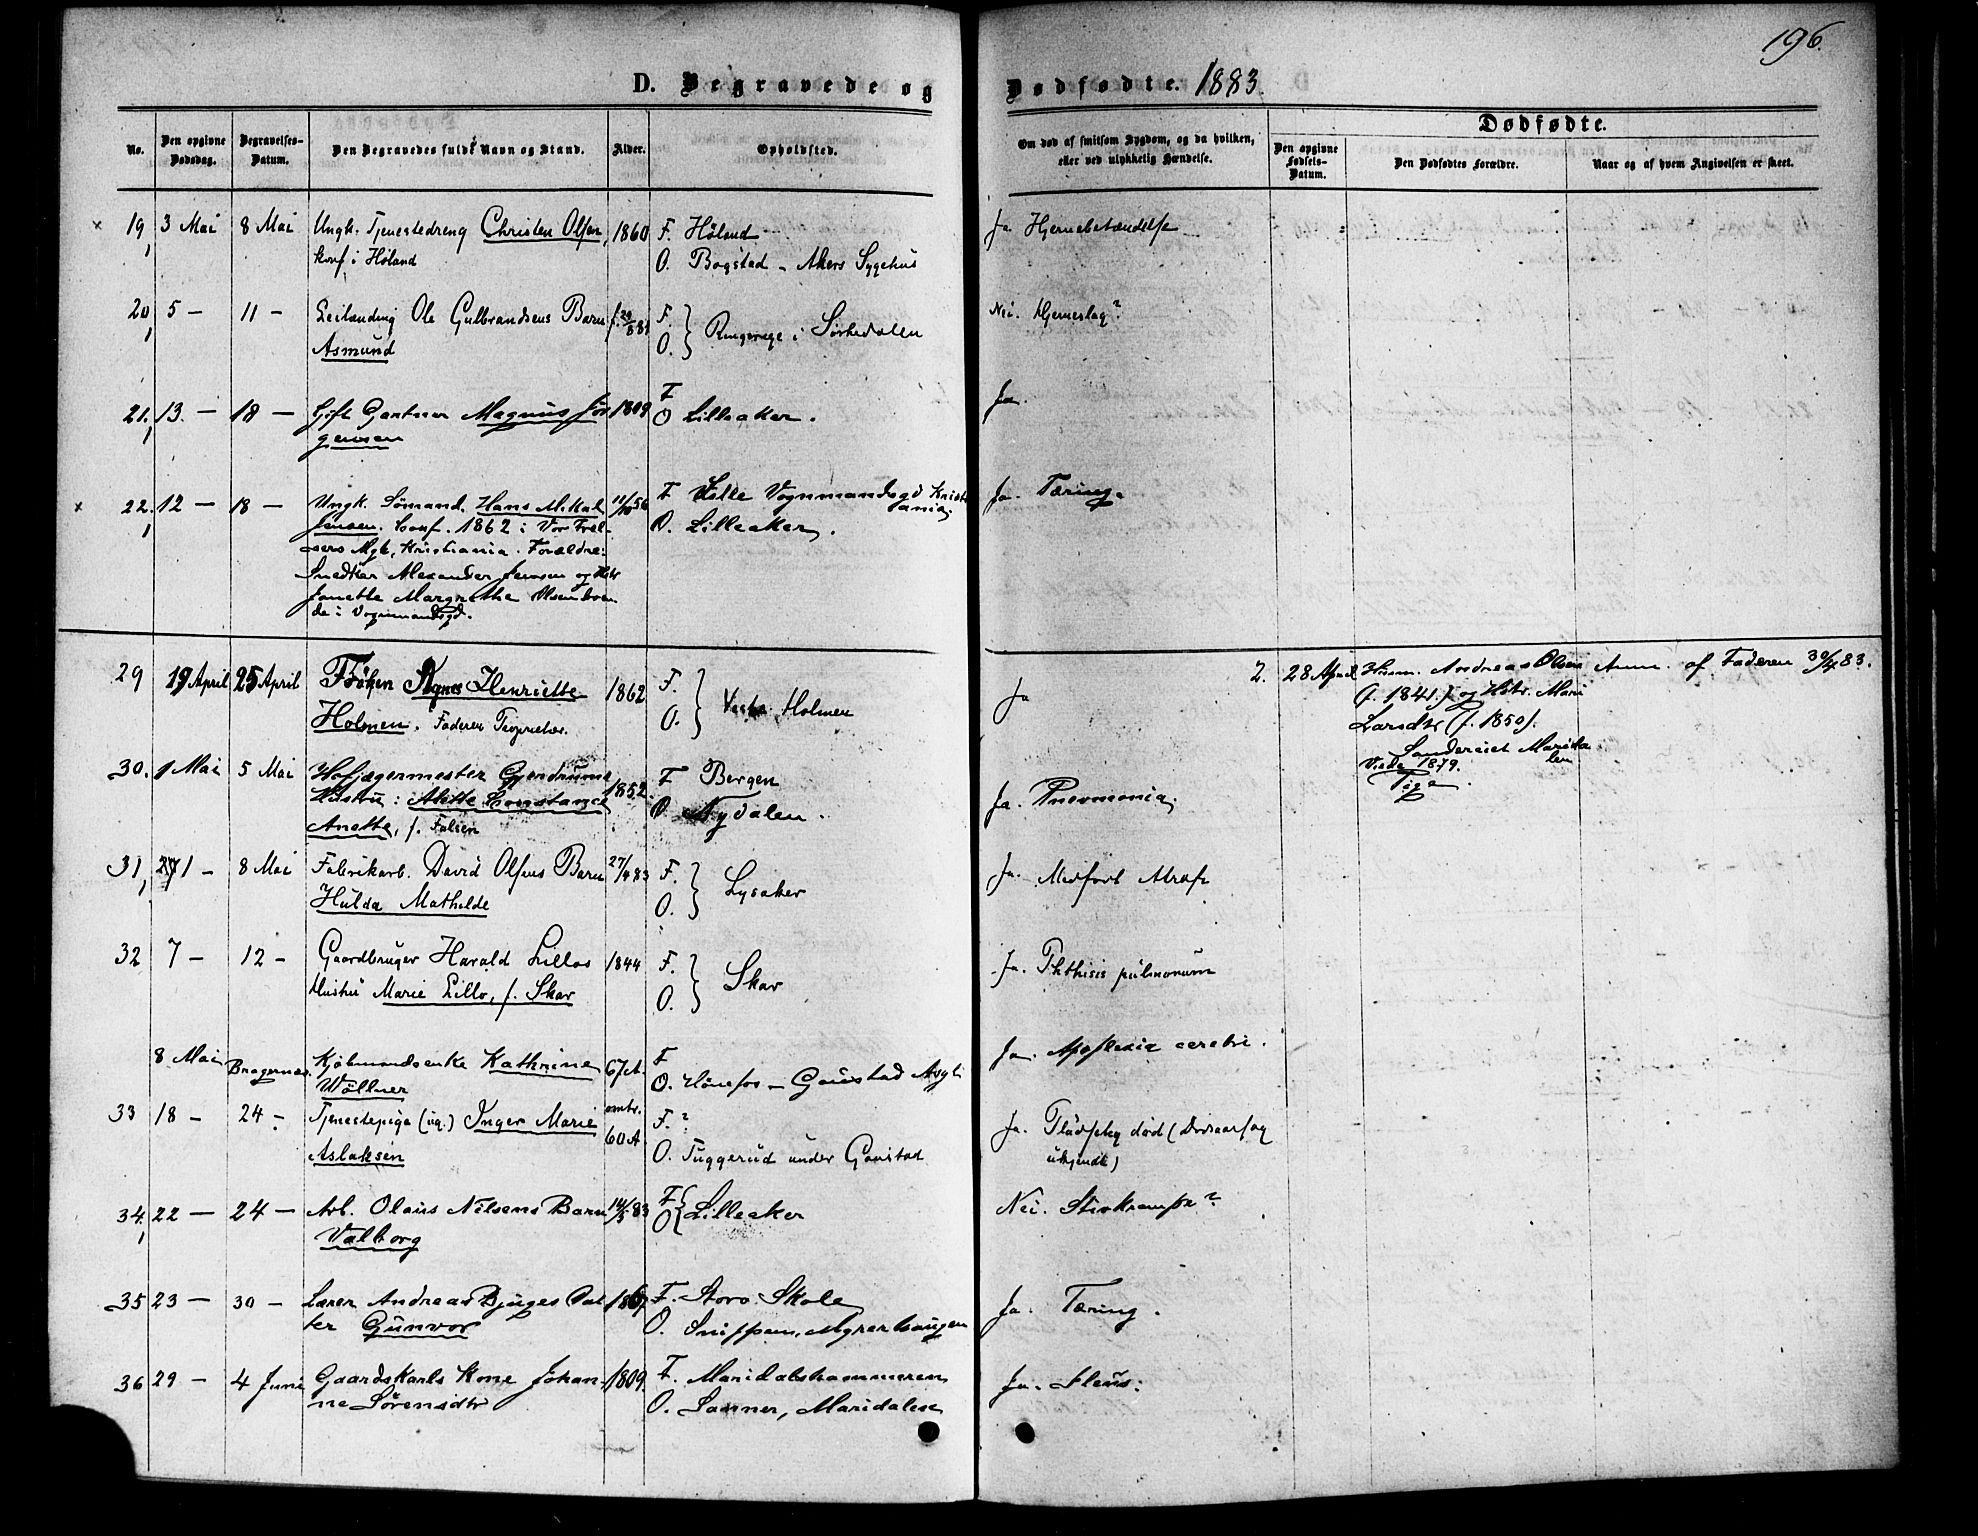 196.
D. Begravede og Dødfødte. 1883.
No.
Den opgivne Dødsdag.
Begravelses-Datum.
Den Begravedes fulde Navn og Stand.
Alder.
Opholdsted.
Om død af smitsom Sygdom, og da hvilken,
eller ved ulykkelig Hændelse.
Dødfødte.
Den opgivne Fødsels-Datum.
Den Dødfødtes Forældre.
Naar og af hvem Angivelsen er skeet.
19, 3 Mai 8 Mai Ungk. Tjenestedreng Christen Olsen, 1860 F. Høland Ja Hjernebetændelse
konf. i Høland O. Bogstad - Akers Sygehus
20, 5 - 11 - Leilænding Ole Gulbrandsens Barn F. Nei. Hjerneslag?
Asmund O. } Ringerige i Sørkedalen
21. 13. - 18 - Gift Gartner Magnus Jør- 1809 F Ja.
gensen O Lilleaker.
22. 12 - 18 - Ungk. Sømand. Hans Mikal 11/10 56 F Lille Vognmandsgd Kristi- Ja. Tæring.
Jensen. Conf. 1862 i Vor Frel- ania.
O. Lilleaker.
sers Mgh, Kristiania. Forældre:
Snedker Alexander Jensen og Hstr
Janette Margrethe Olsen boen-
de i Vognmandsgd.
29 19 April 25 April Frøken Agnes Henriette 1862 F. Ja
Holmen. Faderen Proprietær. O. } Vestre Holmen
2. 28 April Husm. Andreas Olsen Anm. af Faderen 30/4 83.
(f. 1841.) og Hstr. Marie
Larsdtr (f. 1850).
Sandereiet Marida-
len
Viede 1879.
Pige.
30. 1 Mai 5 Mai Hofjægermester Gjerdrums 1852. F Bergen Ja. Pneumonia.
Hustru: Alette Constance O. Nydalen.
Anette, f. Falsen
31, 1 - 8 Mai Fabrikarb. David Olsens Barn 27/4 83 F. Ja. Medfødt Atrofi
Hulda Mathilde O. } Lysaker
32 7 - 12 - Gaardbruger Harald Lillos 1844 F. Ja. Phthisis pulmonum
Hustru Marie Lillo, f. Skar O. } Skar
8 Mai Bragernes. Kjøbmandsenke Kathrine 67 A. F Ja. Apoplexia cerebri.
Wøllner O. Hønefos - Gaustad Asyl
33 18 - 24 - Tjenestepige (ug.) Inger Marie omtr. F. ? Ja. Pludselig død (Dødsaarsag
Aslaksen 60 A. O. Tuggerud under Gaustad ukjendt)
34. 22 - 24 - Arb. Olaus Nilsens Barn 14/5 83 F Nei. Stivkrampe?
Valborg O } Lilleaker
35 23 - 30 - Lærer Andreas Bjuges Dat- F. Storo Skole Ja. Tæring.
ter Gunvor O. Snippen, Myrerhaugen
36 29 - 4 Juni Gaardskarls Kone Johan- 1809. F. Maridalshammeren Ja. Ileus.
ne Sørensdtr O. Sanner, Maridalen